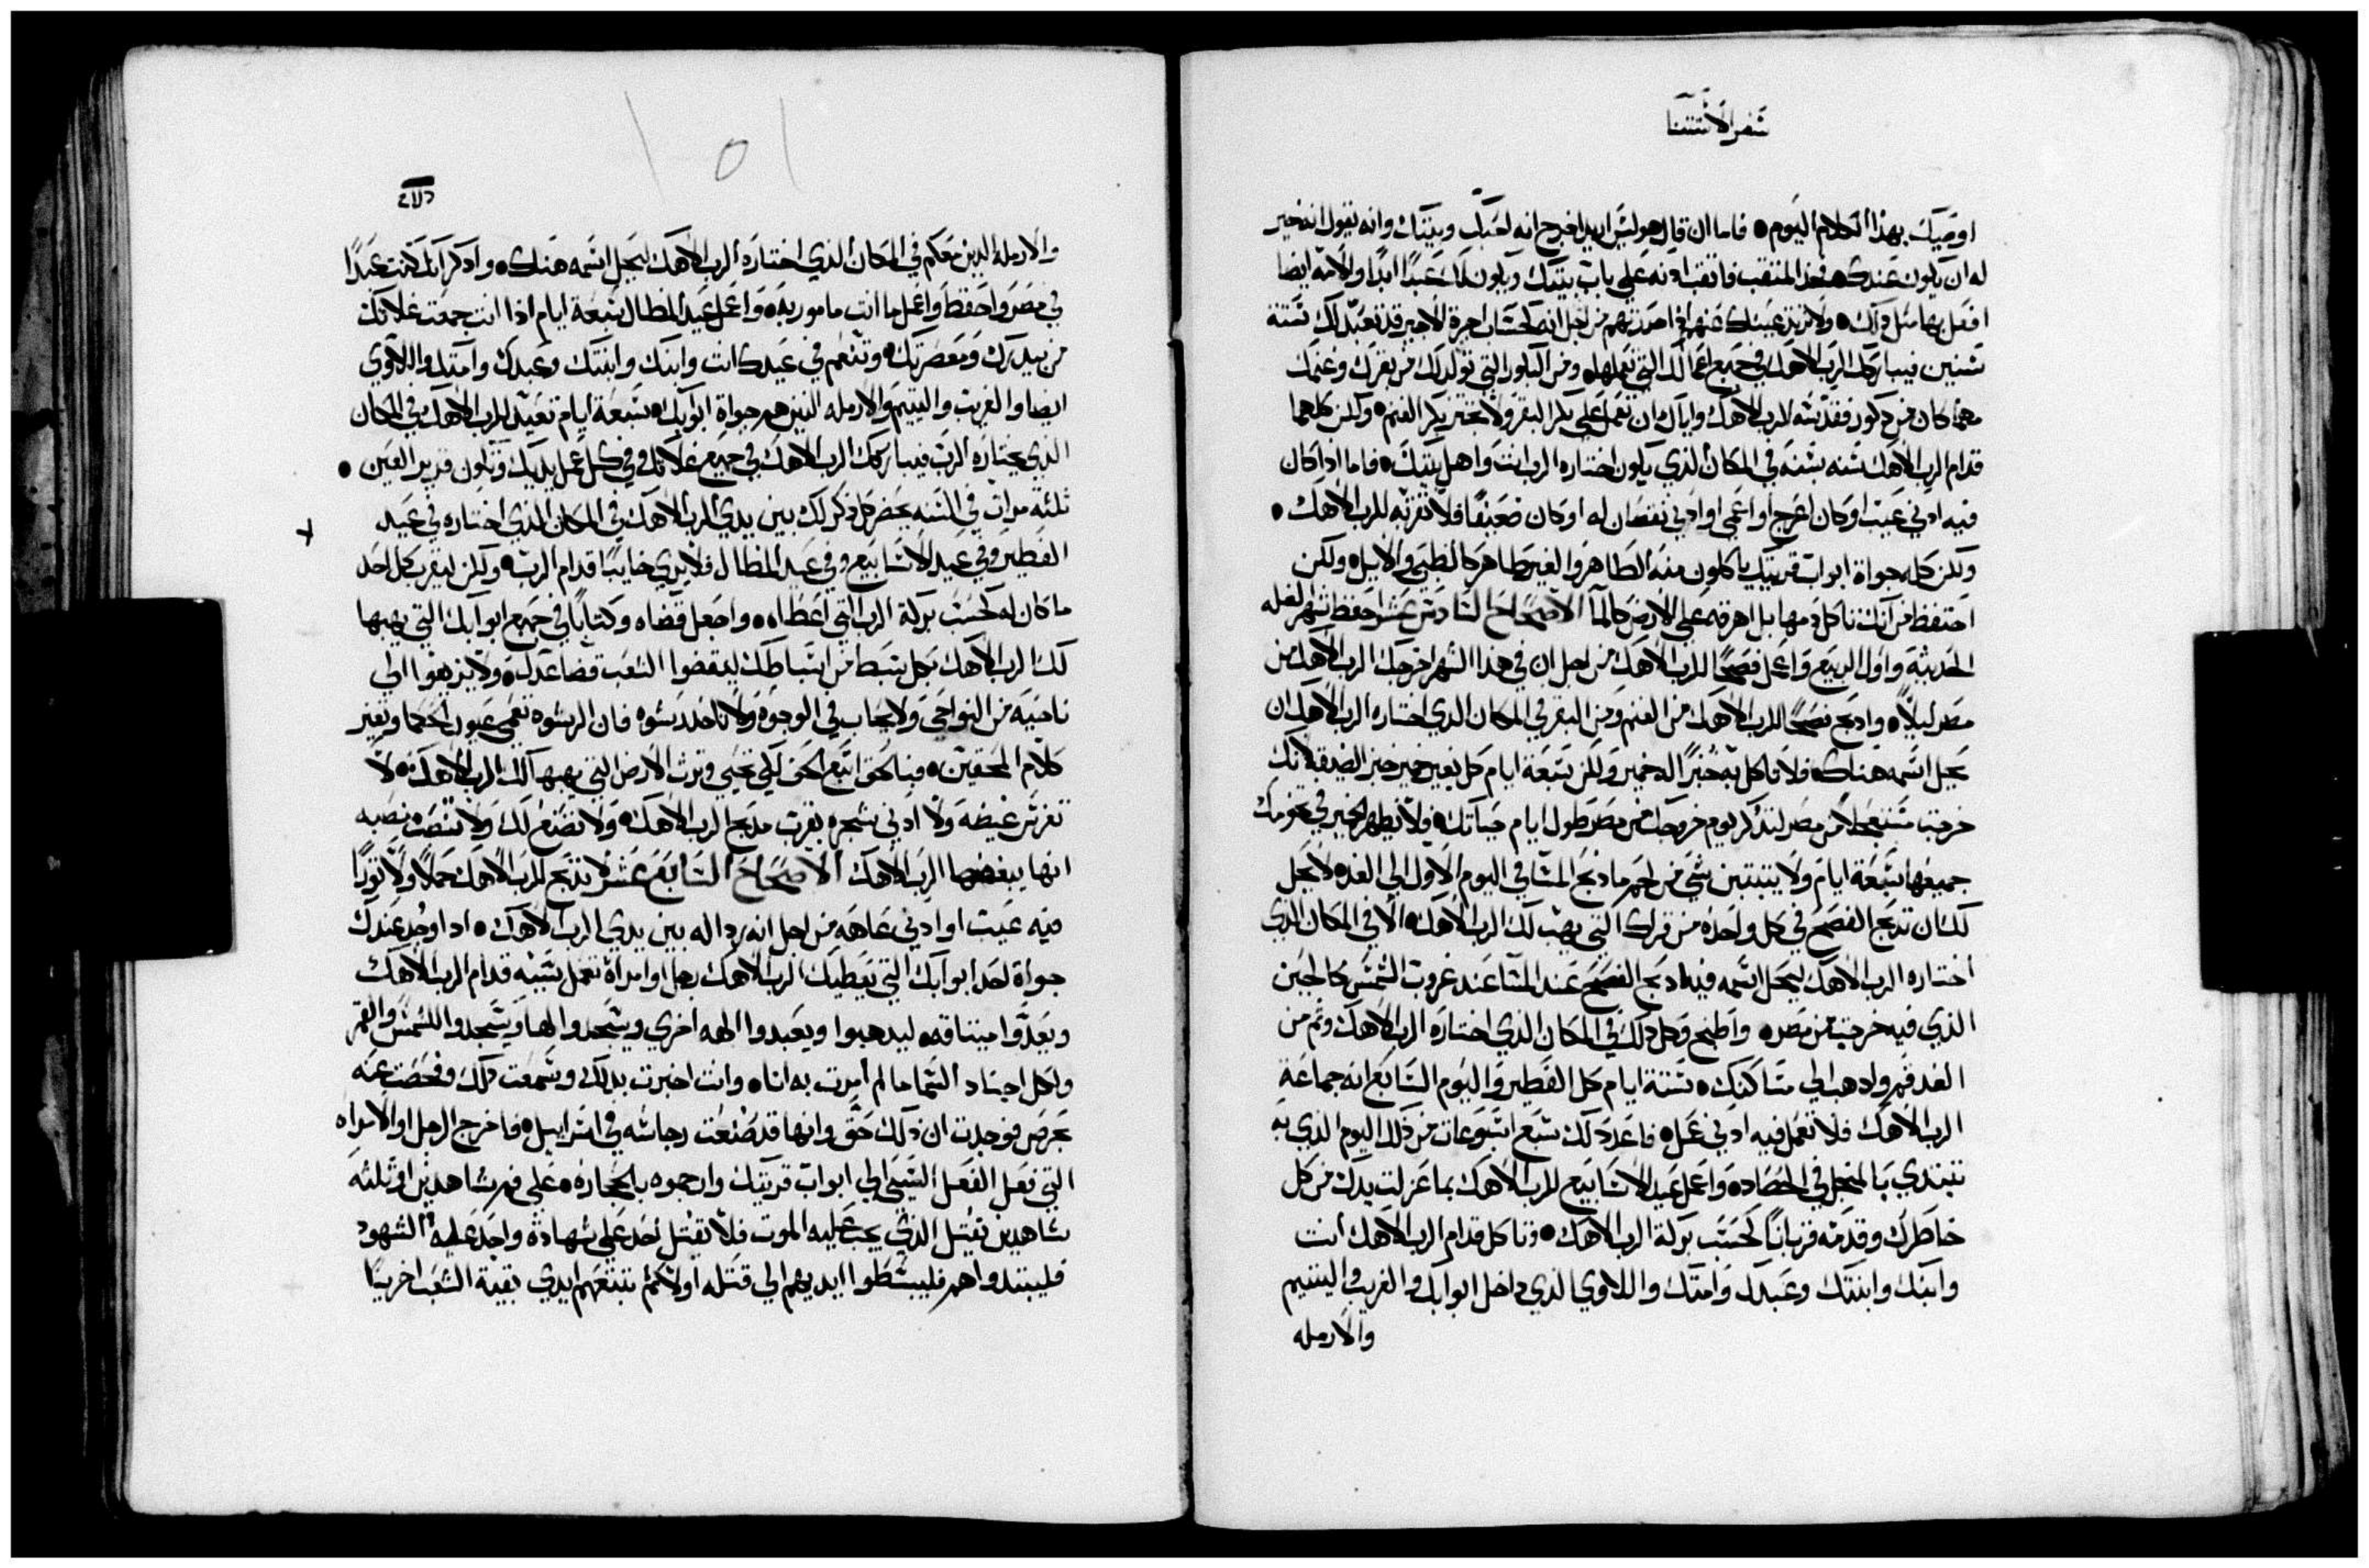 سفر الاستثنا
اوصيك بهذا الكلام اليوم • فاما ان قال هو ليس اريد اخرج انه احبك وبيتك وانه يقول انه خير
له ان يكون عندك فخذ المثقب فاثقب ادنه علي باب بيتك ويكون لك عبدًا ابدًا والامة ايضا
افعل بها مثل ذلك • ولا عينيك عنهم اذا من اجل انه كحساب اجرة الاجير قد تعبد لك ستة
سنين فيباركك الرب الاهك في جميع اعمالك التي تعملها • ومن البكور التي تولد لك من بقرك وغنمك
مهما كان من ذكور فقدسه للرب الاهك واياك ان تعمل علي بكر البقر ولا تجتز بكر الغنم • ولكن كلهما
قدام الرب الاهك سنه بسنه في المكان الذي يكون اختاره الرب انت واهل بيتك • فاما اذا كان
فيه ادني عيب او كان اعرج او اعمي او ادني نقصان له او كان ضعيفًا فلا تقربه للرب الاهك •
ولكن كله جواة ابواب قريتك ياكلون منه الطاهر والغير طاهر كالظبي والايل • ولكن
احتفظ من انك تاكل دمها بل اهرقه علي الارض كالما الاصحاح السادس عشر احفظ شهر الغله
الحديثة واول الربيع واعمل فصحًا للرب الاهك من اجل ان في هذا الشهر اخرجك الرب الاهك من
مصر ليلًا • واذبح فصحًا للرب الاهك من الغنم ومن البقر في المكان الذي اختاره الرب الاهك ان
يحل اسمه هناك • فلا تاكل به خبزًا الخمير ولكن سبعة ايام كل بغير خمير خبز الضيقة لانك
خرجت مستعجلًا من مصر لتذكر يوم خروجك من مصر طول ايام حياتك • فلا يظهر الخمير في تخومك
جميعها سبعة ايام ولا يبيتن شي من لحم ما ذبح المسا في اليوم الاول الي الغد • لا يحل
لك ان تذبح الفصح في كل واحده من قراك التي يهب لك الرب الاهك • الا في المكان الذي
اختاره الرب الاهك ليحل اسمه فيه اذبح الفصح عند المسا عند غروب الشمس كالحين
الذي فيه خرجت من مصر • واطبخ وكل ذلك في المكان الذي اختاره الرب الاهك وثم من
الغد قم واذهب الي مساكنك • ستة ايام كل الفطير واليوم السابع انه جماعة
الرب الاهك فلا تعمل فيه ادني عمل • فاعدد لك سبع اسبوعات من ذلك اليوم الذي به
تبتدي بالمنجل في الحصاد • واعمل عيد الاسابيع للرب الاهك بما عزلت يدك من كل
خاطرك وقدمه قربانًا كحسب بركة الرب الاهك • وتاكل قدام الرب الاهك انت
وابنك وابنتك وعبدك وامتك واللاوي الذي داخل ابوابك والغريب واليتيم
والارمله
والارمله الذين معكم في المكان الذي اختاره الرب الاهك ليحل اسمه هناك • واذكر انك كنت عبدًا
في مصر واحفظ واعمل ما انت مامور به • واعمل عيد المظال سبعة ايام اذا انت جمعت غلاتك
من بيدرك ومعصرتك • وتنعم في عيدك انت وابنك وابنتك وعبدك وامتك واللاوي
ايضا والغريب واليتيم والارمله الذين هم جواة ابوابك • سبعة ايام تعيد للرب الاهك في المكان
الذي يختاره الرب فيباركك الرب الاهك في جميع غلاتك وفي كل عمل يديك وتكون قرير العين •
ثلثة مرات في السنه يحضر كل ذكر لك بين يدي الرب الاهك في المكان الذي اختاره في عيد
الفطير وفي عيد الاسابيع وفي عيد المظال فلا يري خايبًا قدام الرب • ولكن ليقرب كل احد
ما كان له كحسب بركة الرب التي اعطاه • واجعل قضاه وكتابًا في جميع ابوابك التي يهبها
لك الرب الاهك بكل سبط من اسباطك ليقضوا الشعب قضا عدلك • ولا يزيغوا الي
ناحية من النواحي ولا يحاب في الوجوه ولا تاخذ رشوه فان الرشوه تعمي عيون الحكما وتغير
كلام المحقين • فبالحق اتبع الحق لكي تحيي وترث الارض التي يهبها لك الرب الاهك • لا
تغرس غيضة ولا ادني شجره بقرب مذبح الرب الاهك • ولا تصنع لك ولا تنصب نصبه
انها يبغضها الرب الاهك الاصحاح السابع عشر لا تذبح للرب الاهك حملًا ولا ثورًا
فيه عيب او ادني عاهه من اجل انه رداله بين يدي الرب الاهك • اذا وجد عندك
جواة احد ابوابك التي يعطيك الرب الاهك رجل او امراة تعمل سيئه قدام الرب الاهك
ويعدوا ميثاقه • ليذهبوا ويعبدوا الهه اخري ويسجدوا لها ويسجدوا للشمس والقمر
ولكل اجناد السما ما لم امرت به انا • وانت اخبرت بذلك وسمعت ذلك وفحصت عنه
بحرص فوجدت ان ذلك حق وانها قد صنعت رجاسه في اسراييل • فاخرج الرجل او الامراه
التي فعل الفعل السيي الي ابواب قريتك وارجموه بالحجاره • علي فم شاهدين او ثلثه
شاهدين يقتل الذي يجب عليه الموت فلا يقتل احد علي شهادة واحد عليه • الشهود
فليبتدوا هم فليبسطوا ايديهم الي قتله اولًا ثم تتبعهم ايدي بقية الشعب اخريًا